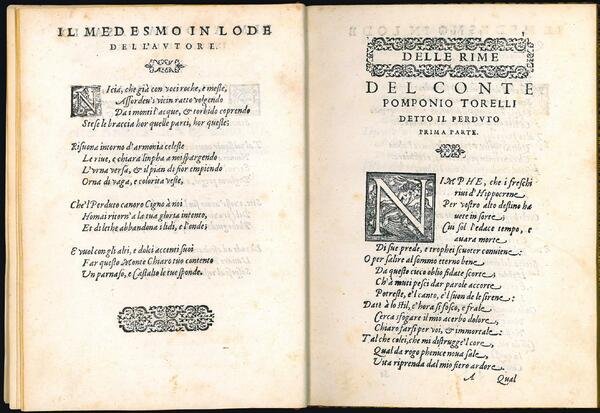 IL MEDESMO IN LODE
DELL'AVTORE.
Nicia, che già con voci roche, e meste,
Assordeu'i vicin ratto volgendo
Da i monti l'acque, & torbido coprendo
Stese le braccia hor quelle parti, hor queste;
Risuona intorno d'armonia celeste
Le riue, e chiara linpha a noi spargendo
L'vrna versa, & il pian di fior empiendo
Orna di vaga, e colorita veste,
Che'l Perduto canoro Cigno à noi
Homai ritorn'a la tua gloria intento,
Et di lethe abbandona i lidi, e l'onde;
E vuol con gli altri, e dolci accenti suoi
Far questo Monte Chiaro tuo contento
Vn parnaso, e Castalio le tue sponde.
DELLE RIME
DEL CONTE
POMPONIO TORELLI
DETTO IL PERDVTO
PRIMA PARTE.
NIMPHE, che i freschi
riui d'Hippocrene
Per vostro alto destino ha
uete in sorte,
Cui sol l'edace tempo, e
auara morte
Di sue prede, e trophei scuoter conuiene:
O per salire al sommo eterno bene
Da questo cieco oblio fidate scorte,
Ch'à muti pesci dar parole accorte
Potreste, e'l canto, e'l suon de le sirene:
Date à lo stil, c'hora sì fosco, e frale
Cerca sfogare il mio acerbo dolore,
Chiaro farsi per voi, & immortale:
Tal che colei, che mi distrugge'l core,
Qual da rogo phenice noua sale,
Vita riprenda dal mio fiero ardore.
A Qual